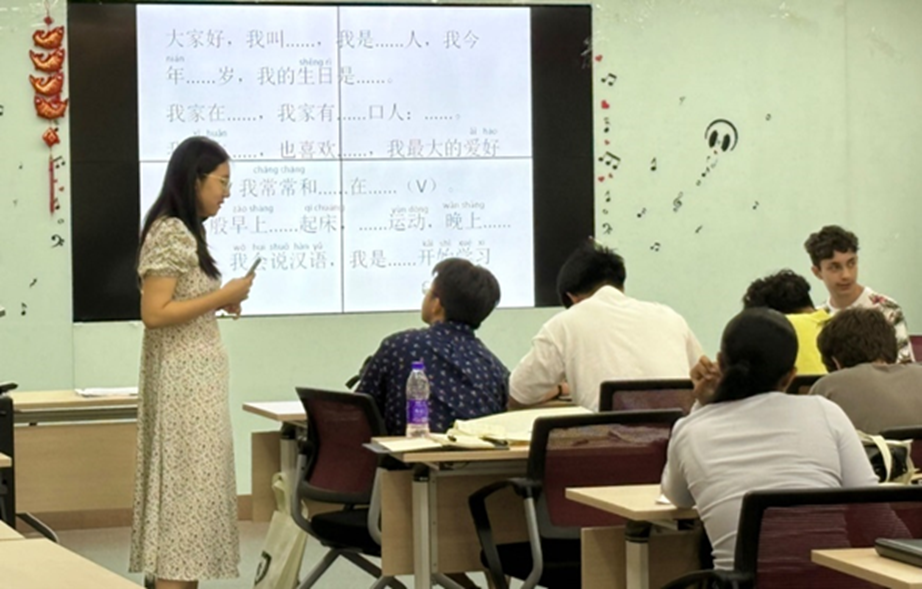 大家好，我叫……，我是……人，我今
nián shēng rì
年……岁，我的生日是……。
我家在……，我家有……口人：……。
huān ài hào
我……，也喜欢……，我最大的爱好
cháng cháng
我常常和……在……（V）。
zǎo shàng qǐ chuáng yùn dòng
般早上……起床，……运动，晚上……
wǒ huì shuō hàn yǔ kāi shǐ xué xí
我会说汉语，我是……开始学习